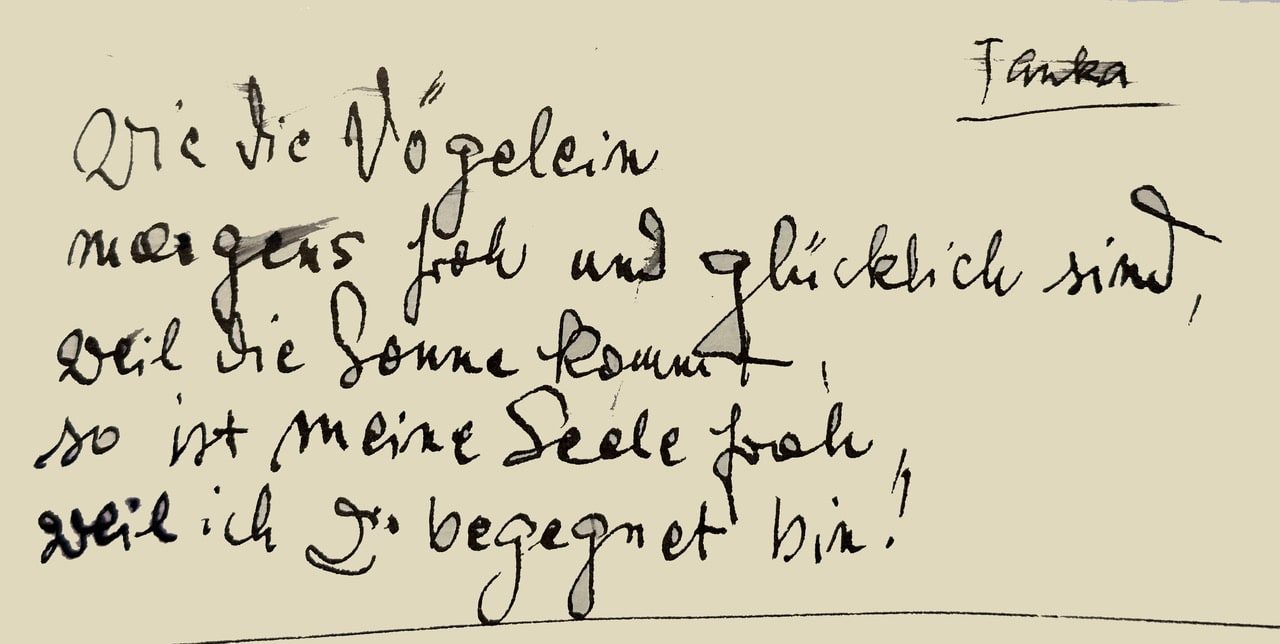 Tanka
Wie die Vögelein
morgens froh und glücklich sind,
weil die Sonne kommt,
so ist meine Seele froh,
weil ich Dir begegnet bin!